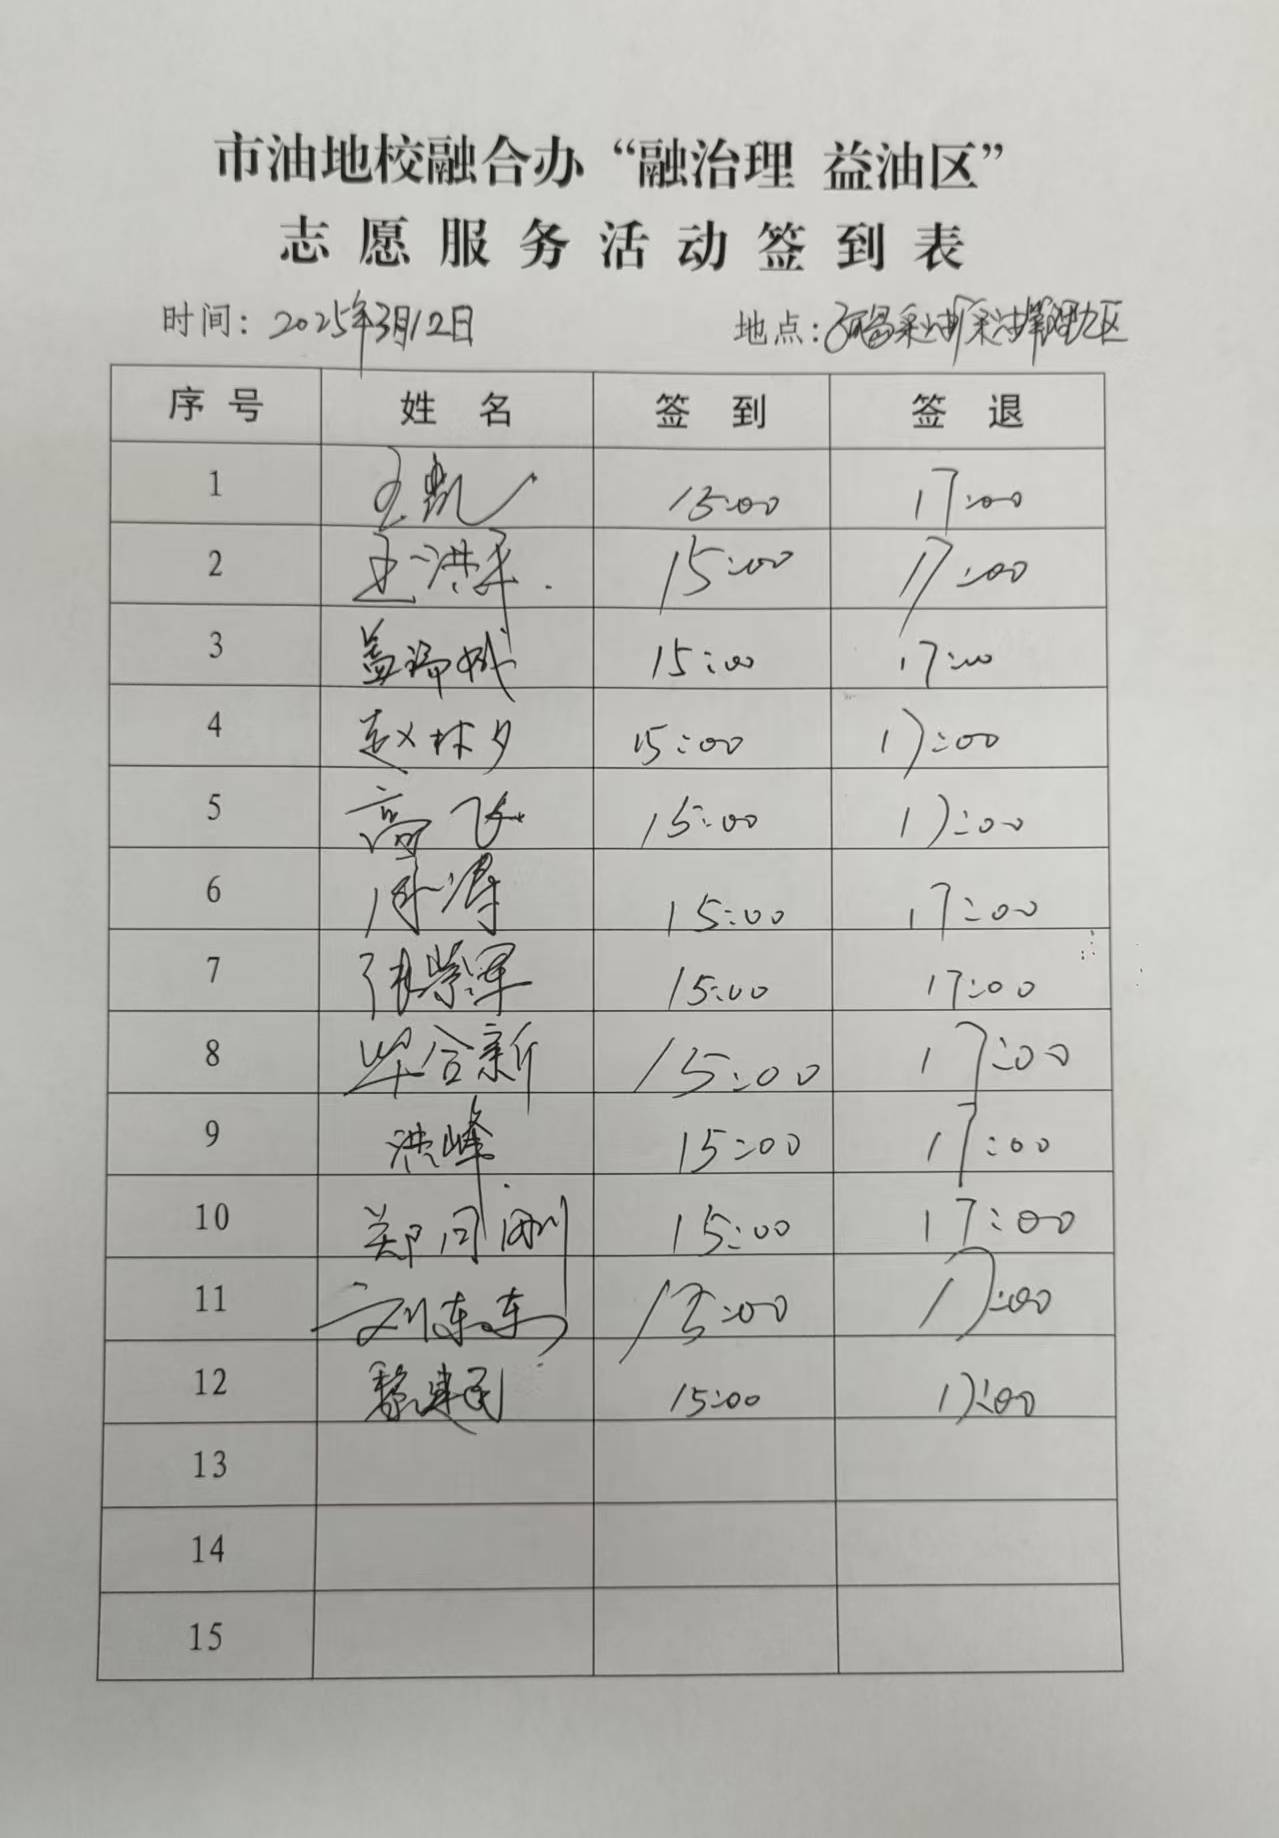 市油地校融合办“融治理 益油区”
志愿服务活动签到表
时间：2025年3月12日 地点：河口采油厂采油管理九区
序号 姓名 签到 签退
1 王凯 15:00 17:00
2 王洪军 15:00 17:00
3 盖 15:00 17:00
4 赵林夕 15:00 17:00
5 高飞 15:00 17:00
6 周涛 15:00 17:00
7 张荣军 15:00 17:00
8 毕合新 15:00 17:00
9 洪峰 15:00 17:00
10 郑同刚 15:00 17:00
11 刘东东 15:00 17:00
12 黎建民 15:00 17:00
13
14
15